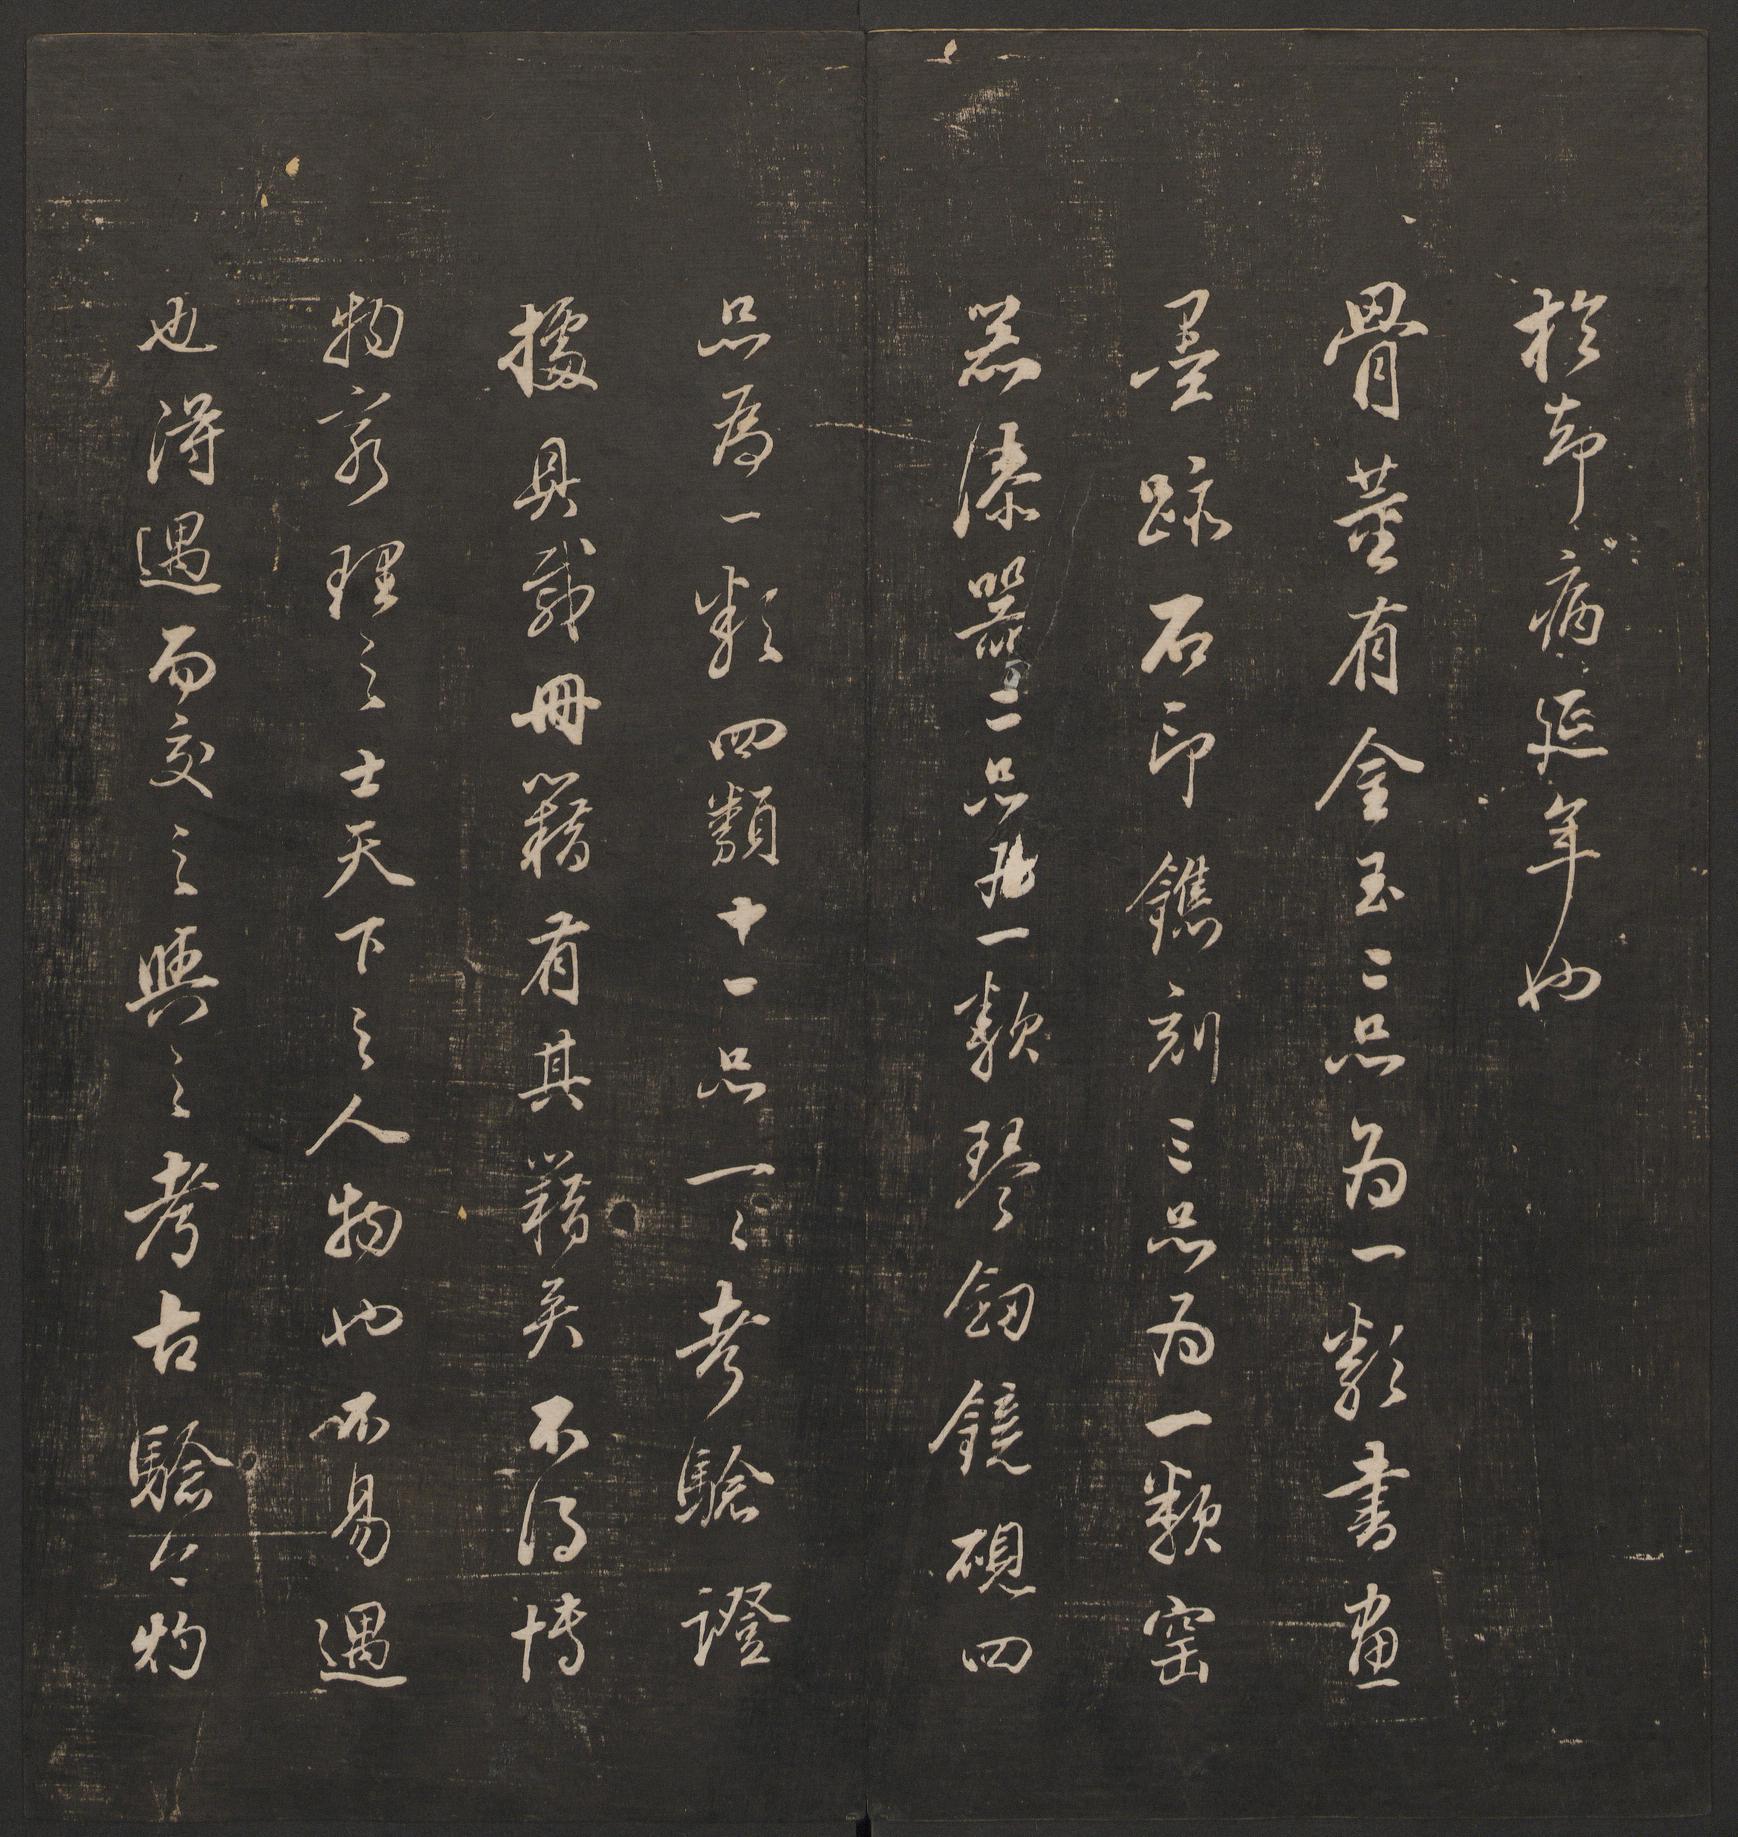 於却病延年也
骨董有金玉二品為一類書畫
墨跡石印鐫刻三品為一類窑
器漆器二品為一類琴劍鏡硯四
品為一類四類十一品一一考驗證
據具載冊籍有其籍矣不得博
物窮理之士天下之人物也不易遇
也得遇而交之與之考古驗今物